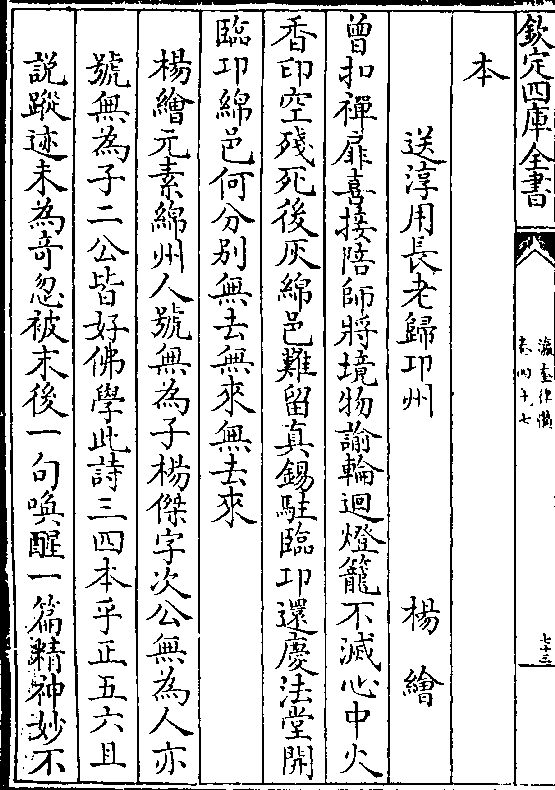 欽定四庫全書
瀛奎律髓
卷四十七
七十三
本
送淳用長老歸卭州 楊繪
曾扣禪扉喜接陪師將境物諭輪迴燈籠不滅心中火
香印空殘死後灰綿邑難留真錫駐臨卭還慶法堂開
臨卭綿邑何分別無去無來無去來
楊繪元素綿州人號無為子楊傑字次公無為人亦
號無為子二公皆好佛學此詩三四本乎正五六且
説蹤迹未為奇忽被末後一句喚醒一篇精神妙不